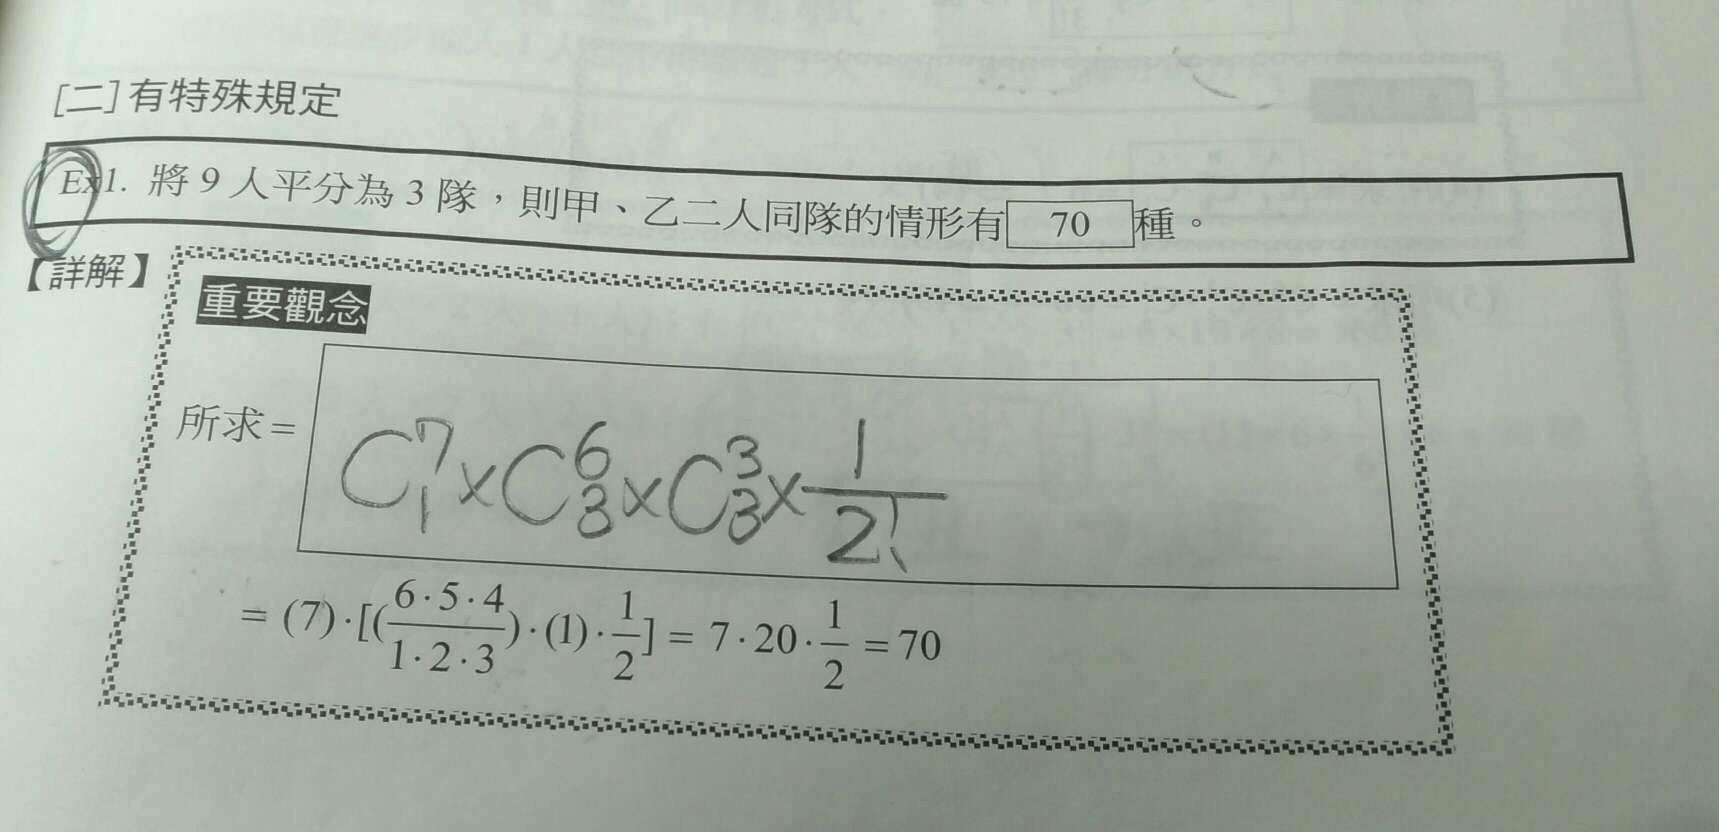 [二]有特殊規定
Ex1. 將9人平分為3隊，則甲、乙二人同隊的情形有 70 種。
【詳解】
重要觀念
所求= C⁷₁×C⁶₃×C³₃×1/2!
= (7)·[(6·5·4/1·2·3)·(1)·1/2] = 7·20·1/2 = 70